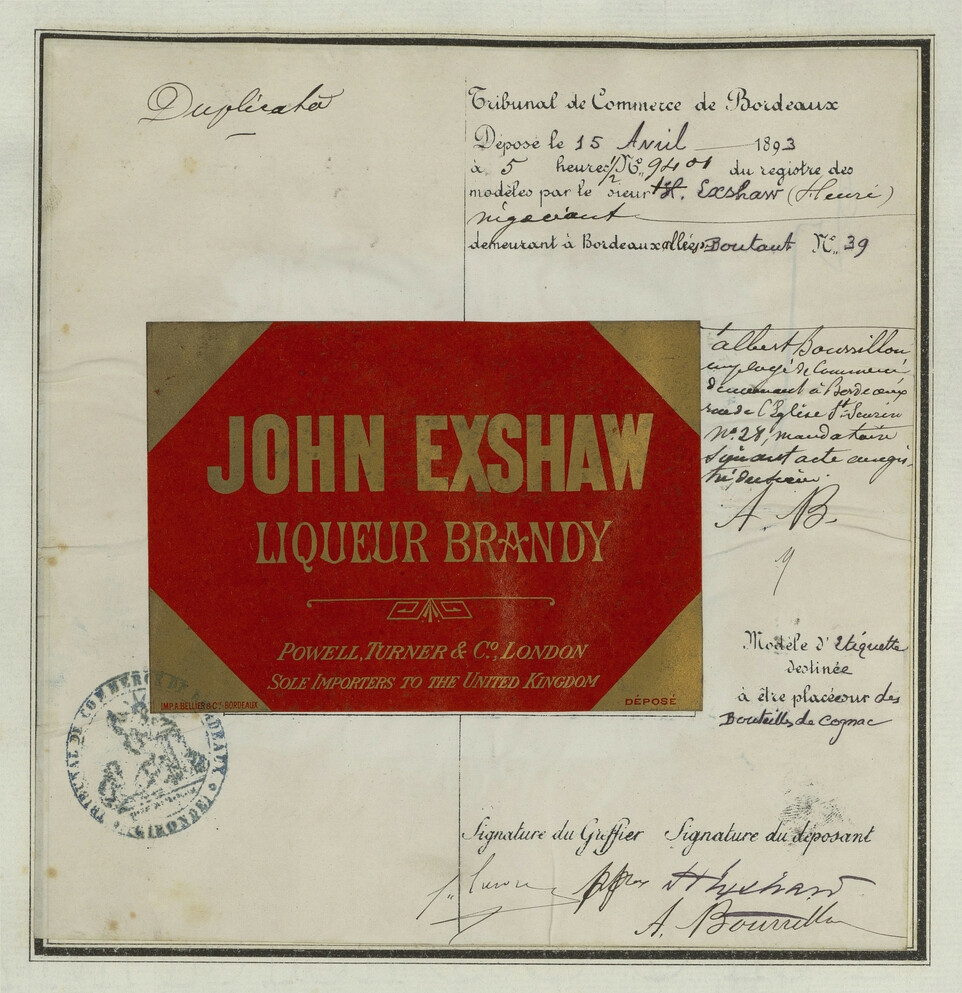 Duplicata
Tribunal de Commerce de Bordeaux
Déposé le 15 Avril 1893
à 5 heures 1/2 Nº 9401 du registre des
modèles par le sieur H. Exshaw (Henri)
négociant
demeurant à Bordeaux allées Boutaut Nº 39
albert Bourrillon
employé de Commerce
demeurant à Bordeaux
rue de l'Eglise St Seurin
nº 28, mandataire
suivant acte enregis-
tré
A. B.
JOHN EXSHAW
LIQUEUR BRANDY
POWELL, TURNER & Cº, LONDON
SOLE IMPORTERS TO THE UNITED KINGDOM
IMP. A. BELLIER & Cie. BORDEAUX
DÉPOSÉ
Modèle d'Etiquette
destinée
à être placée sur des
Bouteilles de Cognac
TRIBUNAL DE COMMERCE DE BORDEAUX
(GIRONDE)
Signature du Greffier Signature du déposant
H Exshaw
A. Bourrillon